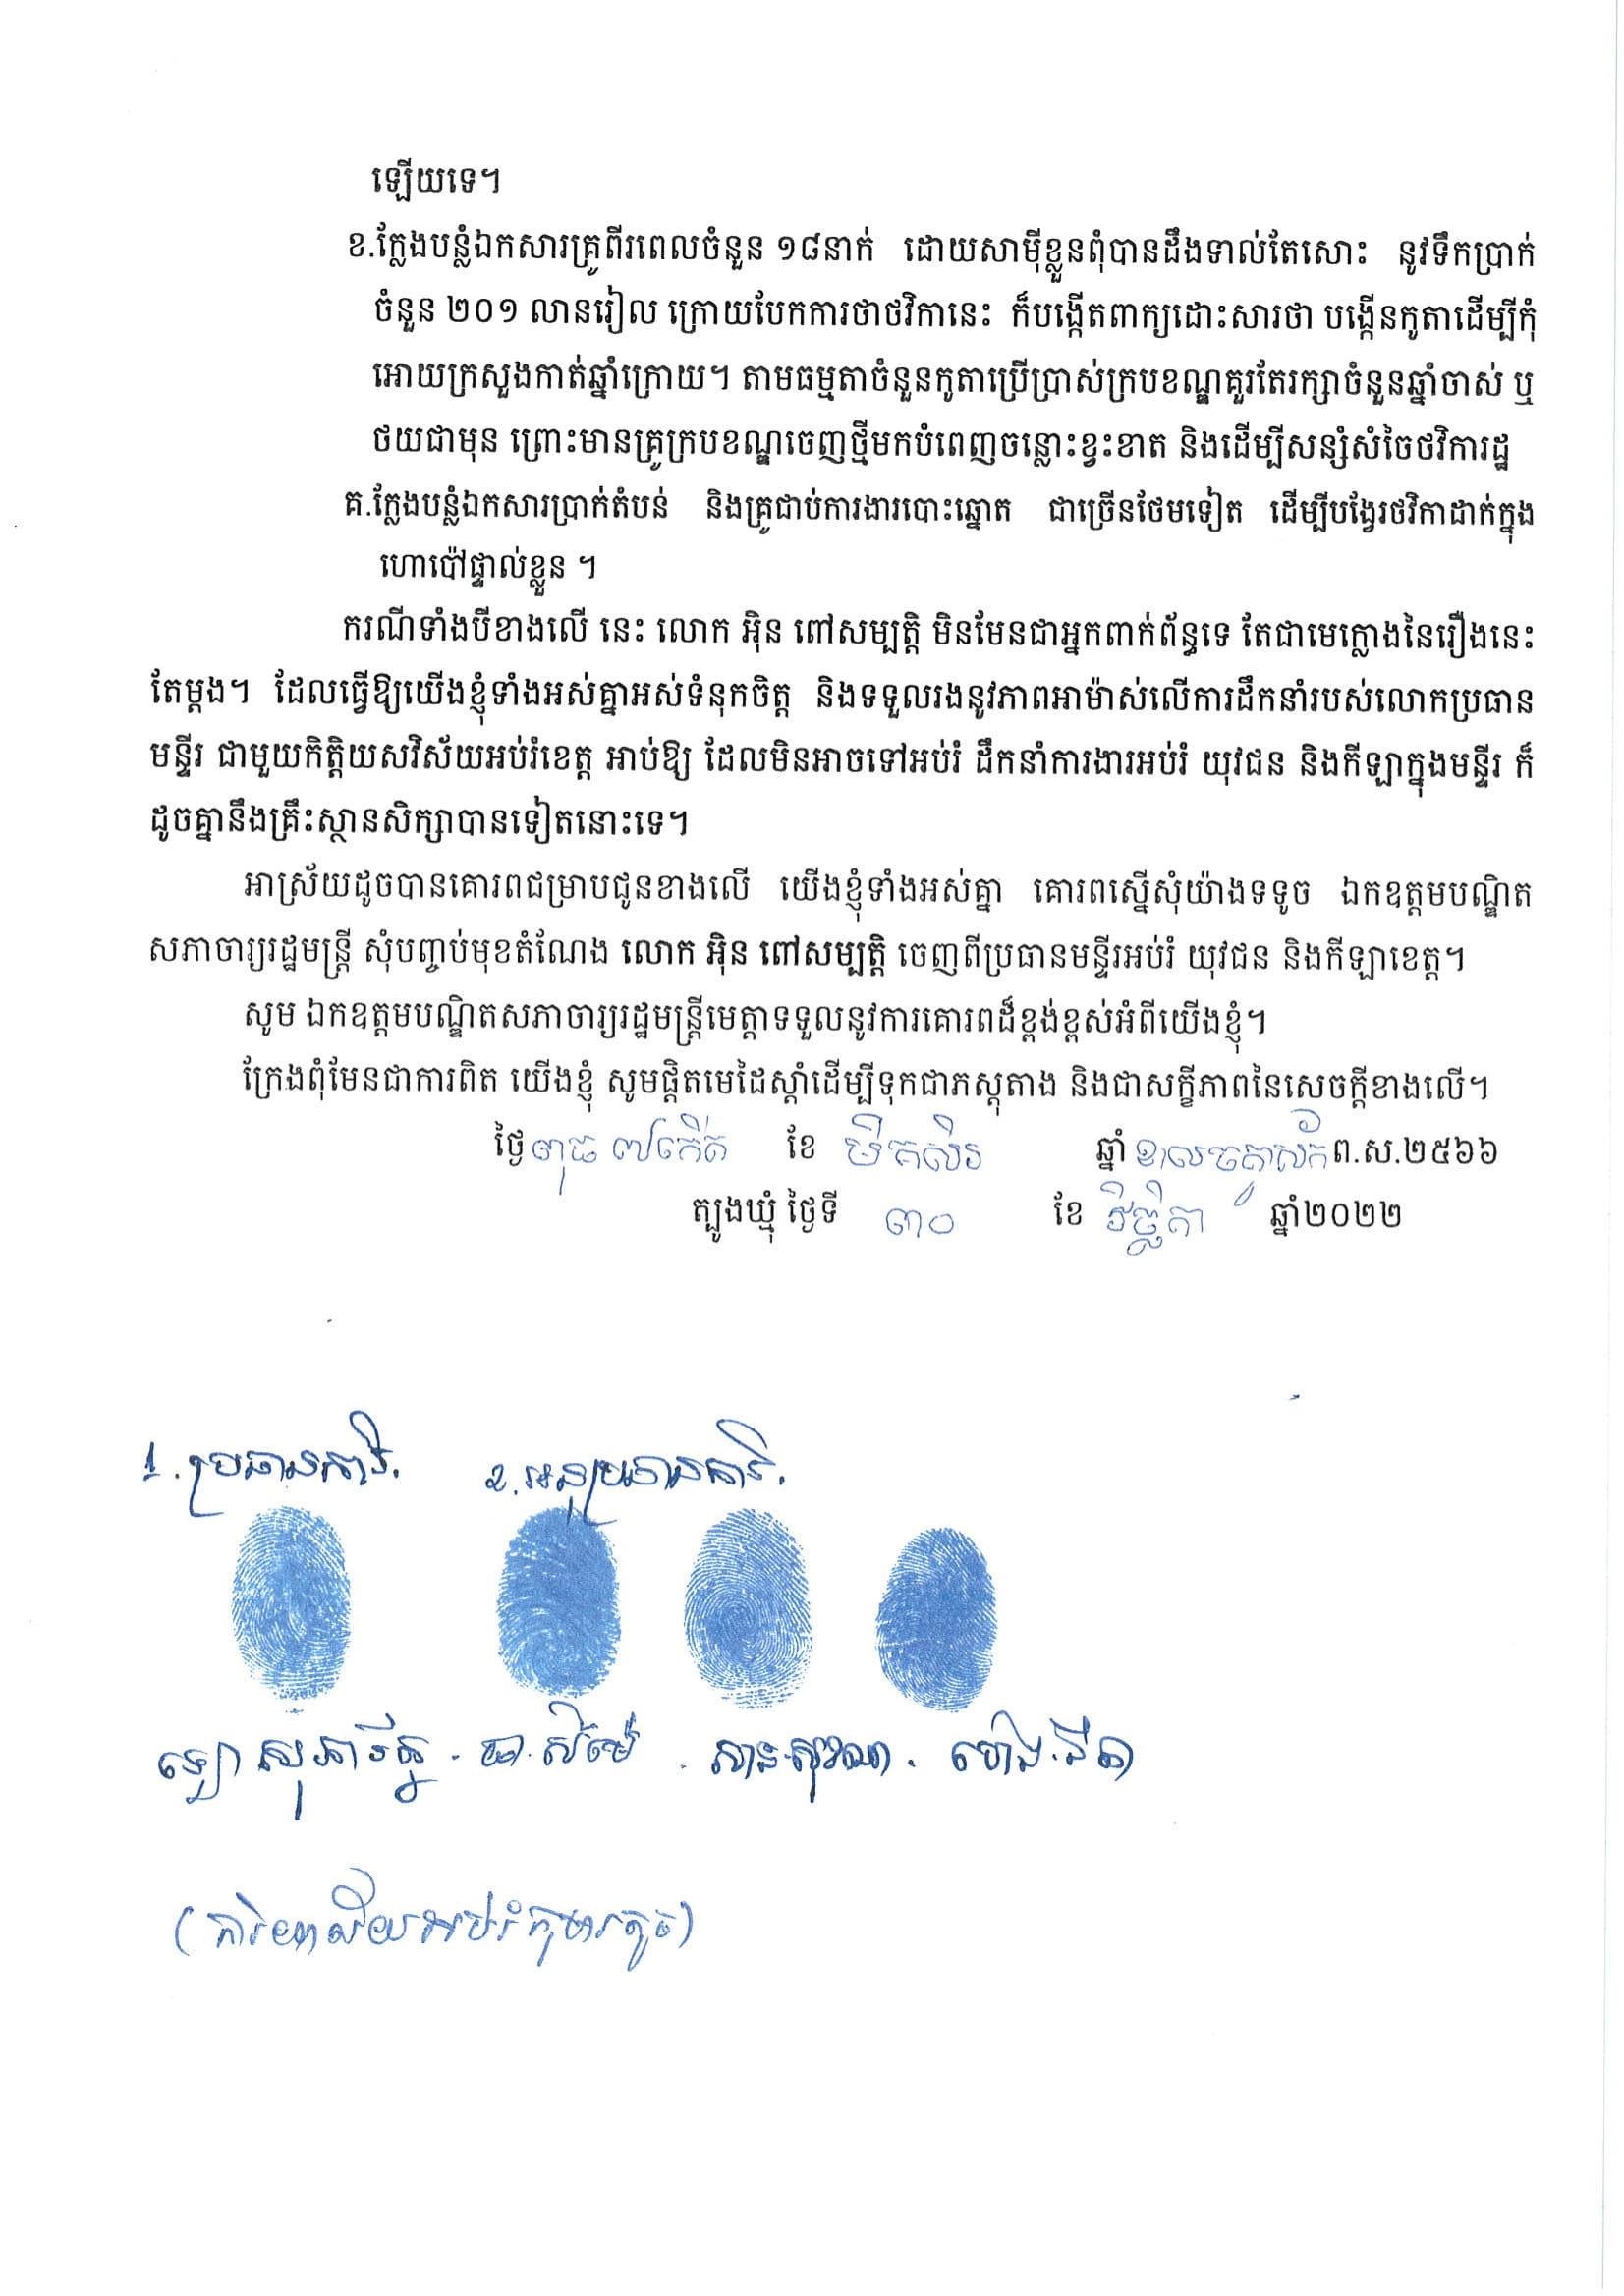 ឡើយទេ។
ខ.ក្លែងបន្លំឯកសារគ្រូពីរពេលចំនួន ១៨នាក់ ដោយសាម៉ីខ្លួនពុំបានដឹងទាល់តែសោះ នូវទឹកប្រាក់
ចំនួន ២០១ លានរៀល ក្រោយបែកការថាថវិកានេះ ក៏បង្កើតពាក្យដោះសារថា បង្កើនកូតាដើម្បីកុំ
អោយក្រសួងកាត់ឆ្នាំក្រោយ។ តាមធម្មតាចំនួនកូតាប្រើប្រាស់ក្របខណ្ឌគួរតែរក្សាចំនួនឆ្នាំចាស់ ឬ
ថយជាមុន ព្រោះមានគ្រូក្របខណ្ឌចេញថ្មីមកបំពេញចន្លោះខ្វះខាត និងដើម្បីសន្សំសំចៃថវិការដ្ឋ
គ.ក្លែងបន្លំឯកសារប្រាក់តំបន់ និងគ្រូជាប់ការងារបោះឆ្នោត ជាច្រើនថែមទៀត ដើម្បីបង្វែរថវិកាដាក់ក្នុង
ហោប៉ៅផ្ទាល់ខ្លួន ។
ករណីទាំងបីខាងលើ នេះ លោក អ៊ិន ពៅសម្បត្តិ មិនមែនជាអ្នកពាក់ព័ន្ធទេ តែជាមេក្លោងនៃរឿងនេះ
តែម្តង។ ដែលធ្វើឱ្យយើងខ្ញុំទាំងអស់គ្នាអស់ទំនុកចិត្ត និងទទួលរងនូវភាពអាម៉ាស់លើការដឹកនាំរបស់លោកប្រធាន
មន្ទីរ ជាមួយកិត្តិយសវិស័យអប់រំខេត្ត អាប់ឱ្យ ដែលមិនអាចទៅអប់រំ ដឹកនាំការងារអប់រំ យុវជន និងកីឡាក្នុងមន្ទីរ ក៏
ដូចគ្នានឹងគ្រឹះស្ថានសិក្សាបានទៀតនោះទេ។
អាស្រ័យដូចបានគោរពជម្រាបជូនខាងលើ យើងខ្ញុំទាំងអស់គ្នា គោរពស្នើសុំយ៉ាងទទូច ឯកឧត្តមបណ្ឌិត
សភាចារ្យរដ្ឋមន្ត្រី សុំបញ្ចប់មុខតំណែង លោក អ៊ិន ពៅសម្បត្តិ ចេញពីប្រធានមន្ទីរអប់រំ យុវជន និងកីឡាខេត្ត។
សូម ឯកឧត្តមបណ្ឌិតសភាចារ្យរដ្ឋមន្ត្រីមេត្តាទទួលនូវការគោរពដ៏ខ្ពង់ខ្ពស់អំពីយើងខ្ញុំ។
ក្រែងពុំមែនជាការពិត យើងខ្ញុំ សូមផ្តិតមេដៃស្តាំដើម្បីទុកជាភស្តុតាង និងជាសក្ខីភាពនៃសេចក្តីខាងលើ។
ថ្ងៃពុធ ៧កើត ខែ មិគសិរ ឆ្នាំខាលចត្វាស័ក ព.ស.២៥៦៦
ត្បូងឃ្មុំ ថ្ងៃទី ៣០ ខែ វិច្ឆិកា ឆ្នាំ២០២២
1.ប្រធានការិ. 2.អនុប្រធានការិ.
ឡោ សុភារិទ្ធ . ហេង.នីឆា
(ការិយាល័យអប់រំកុមារតូច)